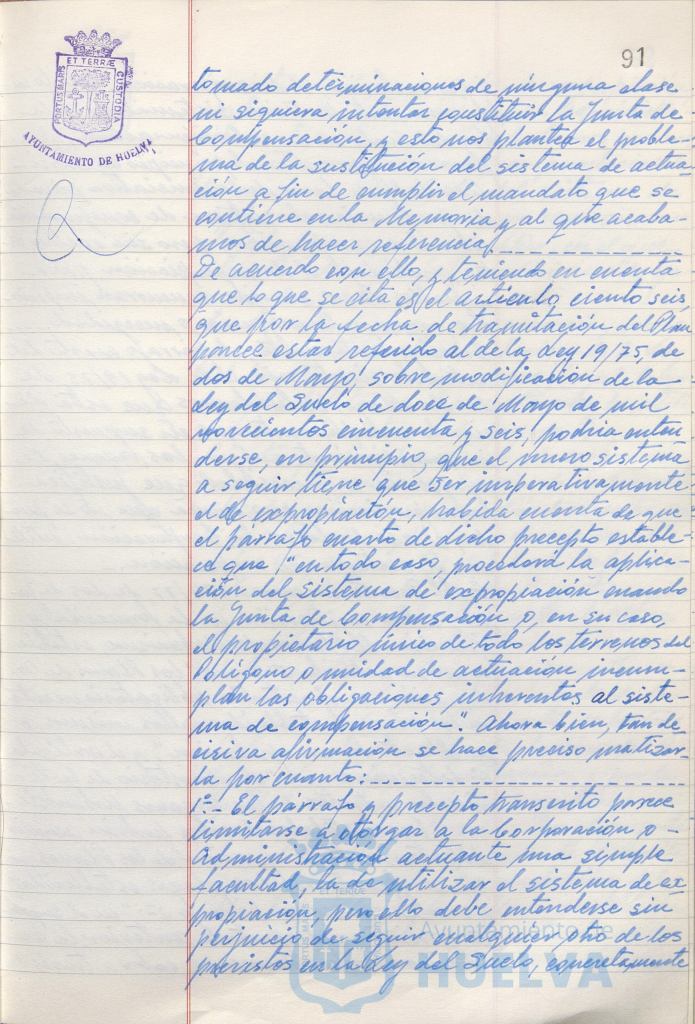 91
ET TERRÆ
PORTUS MARIS
CUSTODIA
AYUNTAMIENTO DE HUELVA
tomado determinaciones de ninguna clase
ni siquiera intentar constituir la Junta de
Compensación, y esto nos plantea el proble-
ma de la sustitución del sistema de actua-
ción a fin de cumplir el mandato que se
contiene en la Memoria y al que acaba-
mos de hacer referencia.
De acuerdo con ello, y teniendo en cuenta
que lo que se cita es el artículo ciento seis,
que por la fecha de tramitación del Plan
parece estar referido al de la Ley 19/75, de
dos de Mayo, sobre modificación de la
Ley del Suelo de doce de Mayo de mil
novecientos cincuenta y seis, podría enten
derse, en principio, que el nuevo sistema
a seguir tiene que ser imperativamente
el de expropiación, habida cuenta de que
el párrafo cuarto de dicho precepto estable-
ce que "en todo caso, procederá la aplica-
ción del sistema de expropiación cuando
la Junta de Compensación o, en su caso,
el propietario único de todo los terrenos del
Polígono o unidad de actuación incum-
plan las obligaciones inherentes al siste-
ma de compensación". Ahora bien, tan de
cisiva afirmación se hace preciso matizar-
la por cuanto:
1º.- El párrafo y precepto transcrito parece
limitarse a otorgar a la Corporación o
Administración actuante una simple
facultad, la de utilizar el sistema de ex
propiación, pero ello debe entenderse sin
perjuicio de seguir cualquier otro de los
previstos en la Ley del Suelo, concretamente
ET TERRÆ
Ayuntamiento de
HUELVA